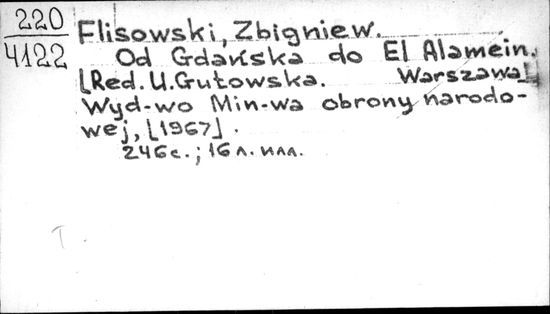 220
4122
Flisowski, Zbigniew.
Od Gdańska do El Alamein.
[Red. U. Gutowska. Warszawa]
Wyd-wo Min-wa obrony narodo-
wej, [1967].
246с.; 16 л. илл.
T.